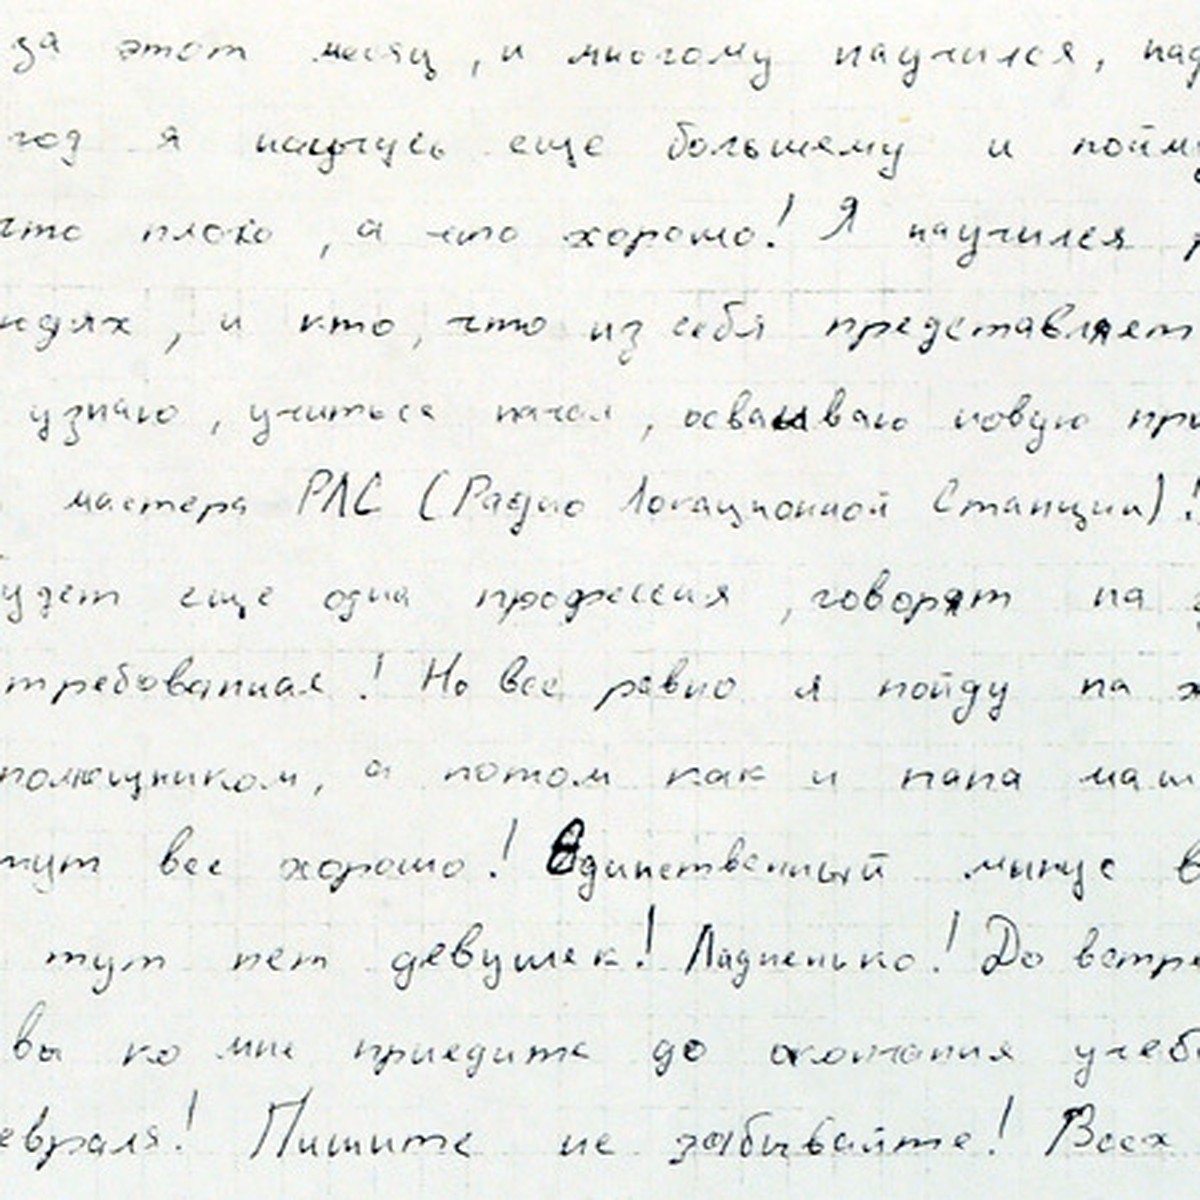 за этот месяц, и многому научился, над
год я научусь еще большему и пойму
что плохо, а что хорошо! Я научился р
юдях, и кто, что из себя представляет
узнаю, учиться начал, осваиваю новую при
мастера РЛС (Радио Локационной Станции)!
удет еще одна профессия, говорят на
требованная! Но все равно я пойду на ж
помощником, а потом как и папа маш
тут все хорошо! Единственный минус в
тут нет девушек! Ладненько! До встре
вы ко мне приедите до окончания учеб
евраля! Пишите не забывайте! Всех